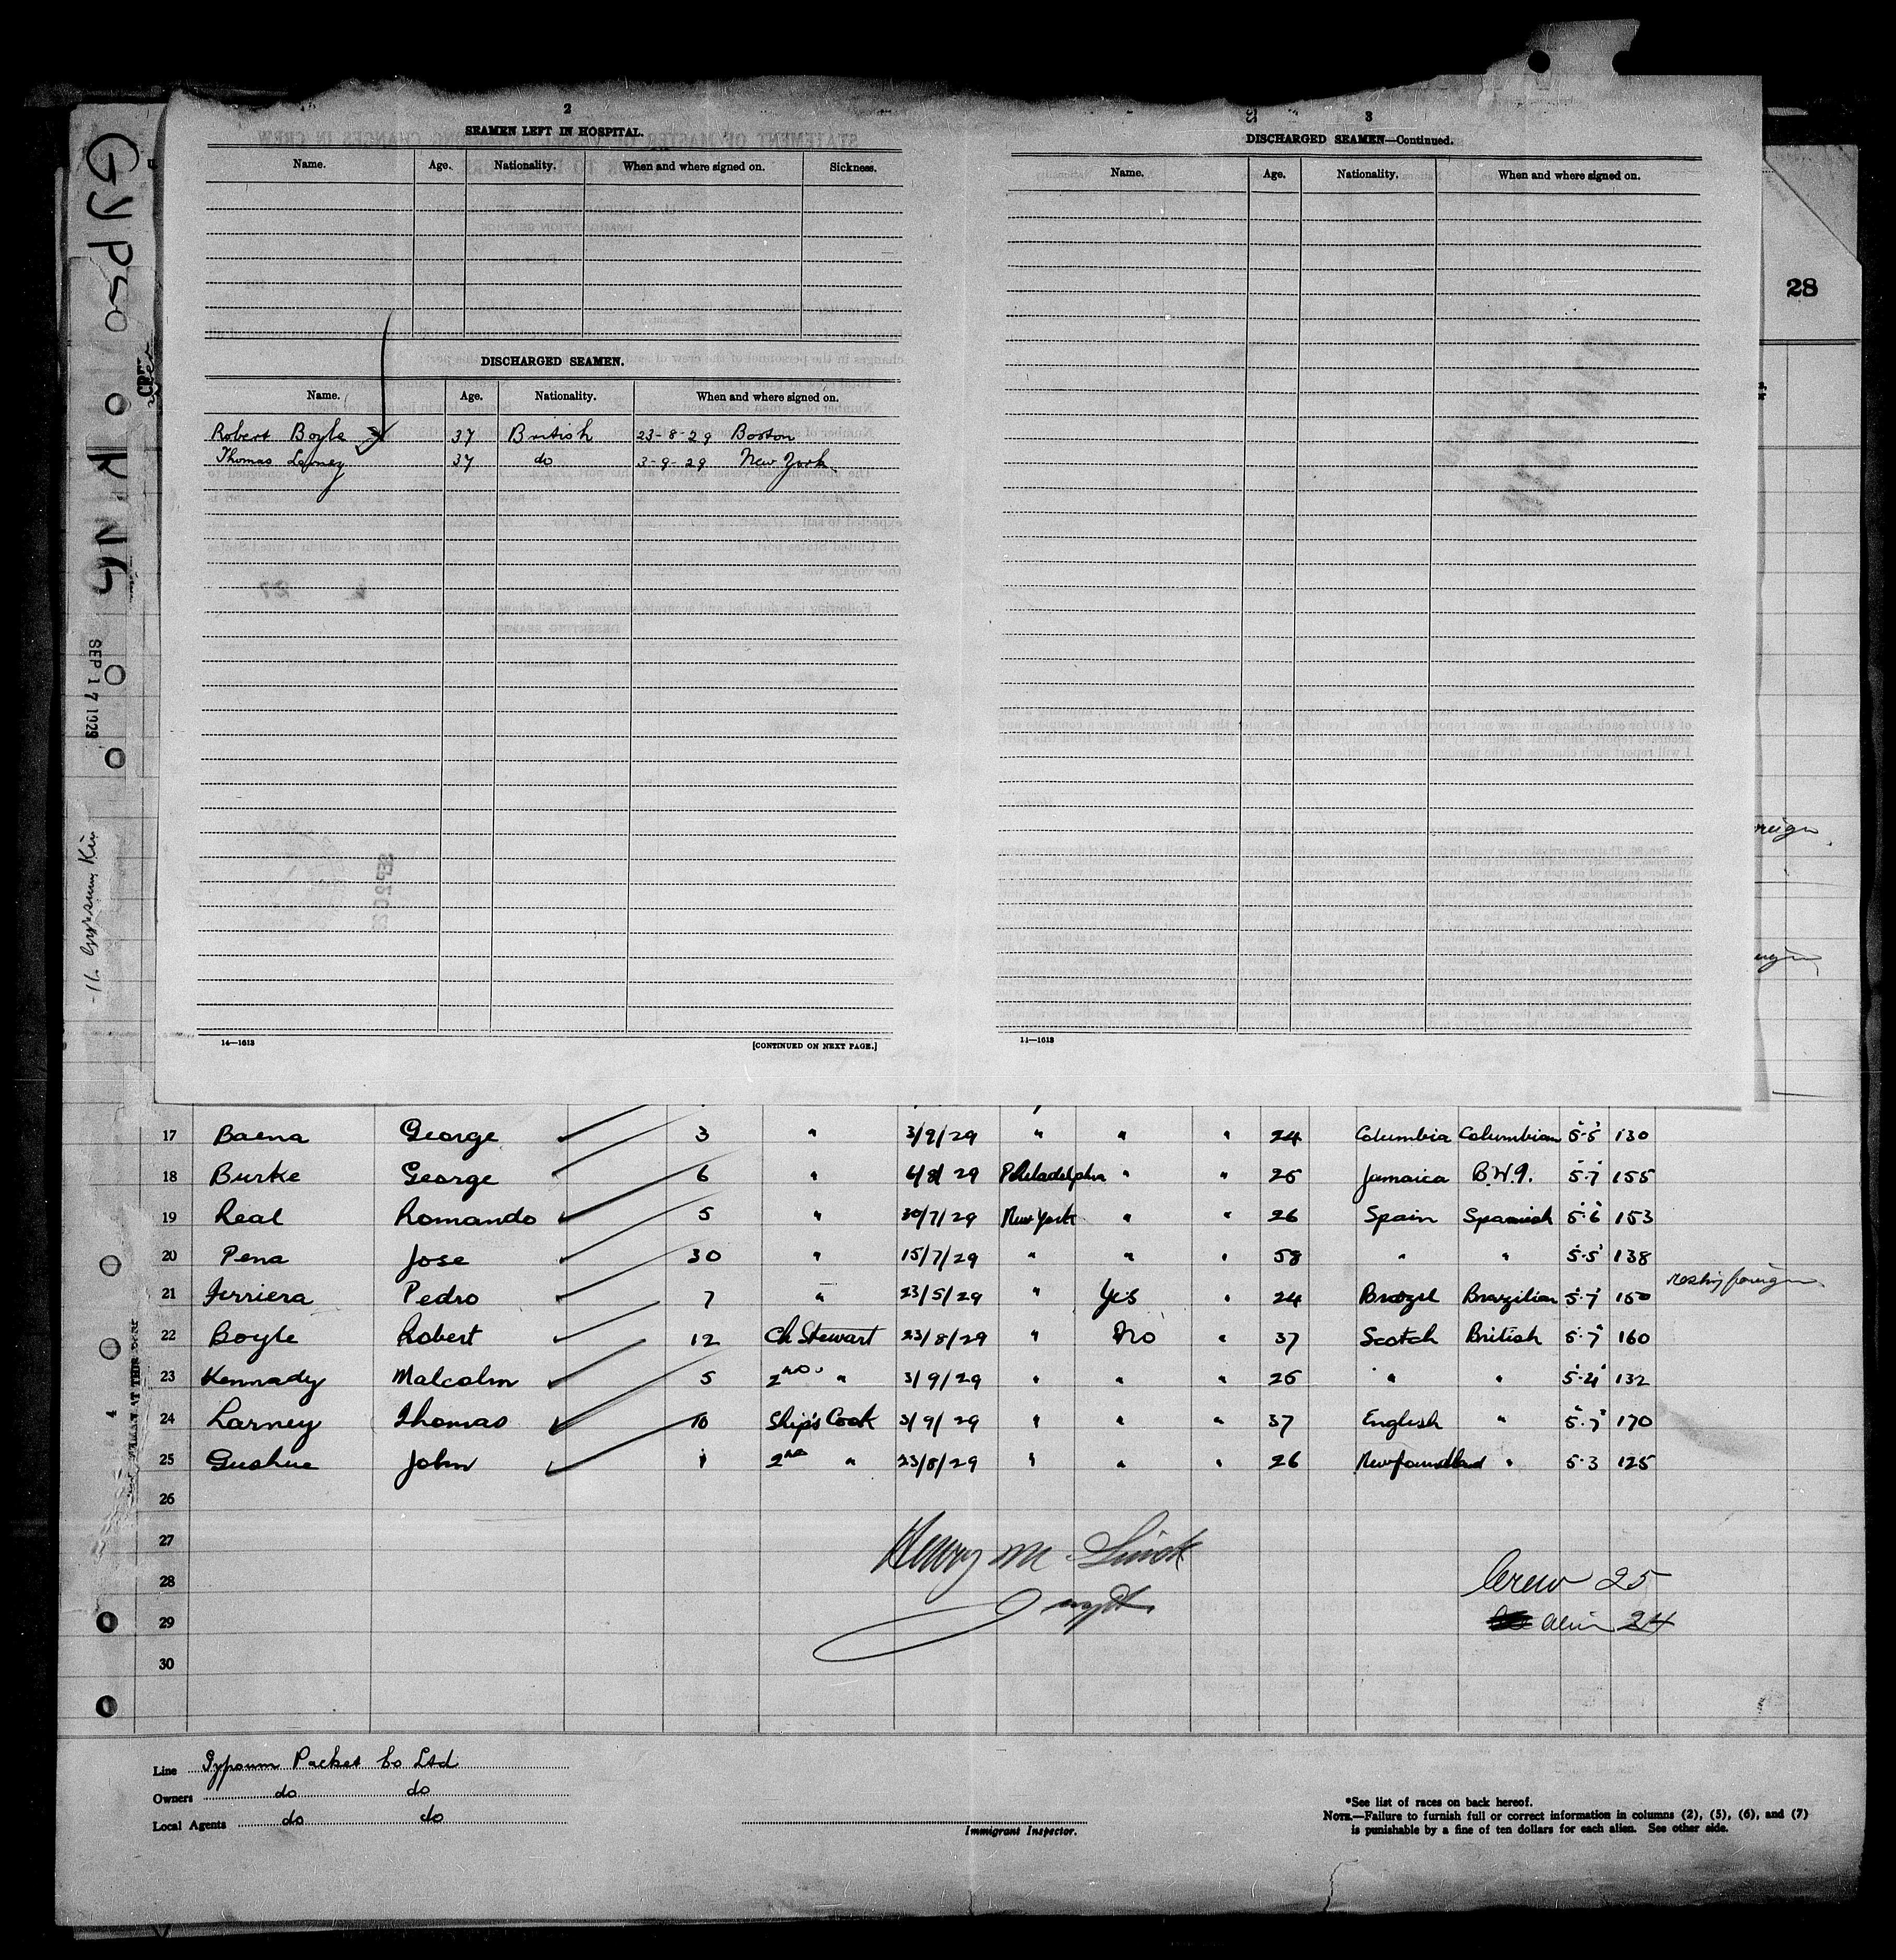 2
SEAMEN LEFT IN HOSPITAL.
Name. Age. Nationality. When and where signed on. Sickness.
DISCHARGED SEAMEN.
Name. Age. Nationality. When and where signed on.
Robert Boyle 37 British 23-8-29 Boston
Thomas Larney 37 do 3-9-29 New York
14—1613 [CONTINUED ON NEXT PAGE.]
3
DISCHARGED SEAMEN—Continued.
Name. Age. Nationality. When and where signed on.
14—1613
28
GYPSUM KING
SEP 17 1929
17 Baena George 3 " 3/9/29 " " " 24 Columbia Columbian 5'5" 130
18 Burke George 6 " 6/8/29 Philadelphia " " 25 Jamaica B.W.I. 5'7 155
19 Real Romando 5 " 30/7/29 New York " " 26 Spain Spanish 5'6" 153
20 Pena Jose 30 " 15/7/29 " " " 58 " " 5'5" 138
21 Ferriera Pedro 7 " 23/5/29 " Yes " 24 Brazil Brazilian 5'7" 150 foreign
22 Boyle Robert 12 Ch Stewart 23/8/29 " No " 37 Scotch British 5'7" 160
23 Kennady Malcolm 5 2nd " 3/9/29 " " " 25 " " 5'4" 132
24 Larney Thomas 10 Ship's Cook 3/9/29 " " " 37 English " 5'7" 170
25 Gushue John 1 2nd " 23/8/29 " " " 26 Newfoundland " 5'3 125
26
27
28
29
30
Henry M
Crew 25
Alien 24
Line Gypsum Packet Co Ltd
Owners do do
Local Agents do do
Immigrant Inspector.
*See list of races on back hereof.
NOTE.—Failure to furnish full or correct information in columns (2), (5), (6), and (7)
is punishable by a fine of ten dollars for each alien. See other side.